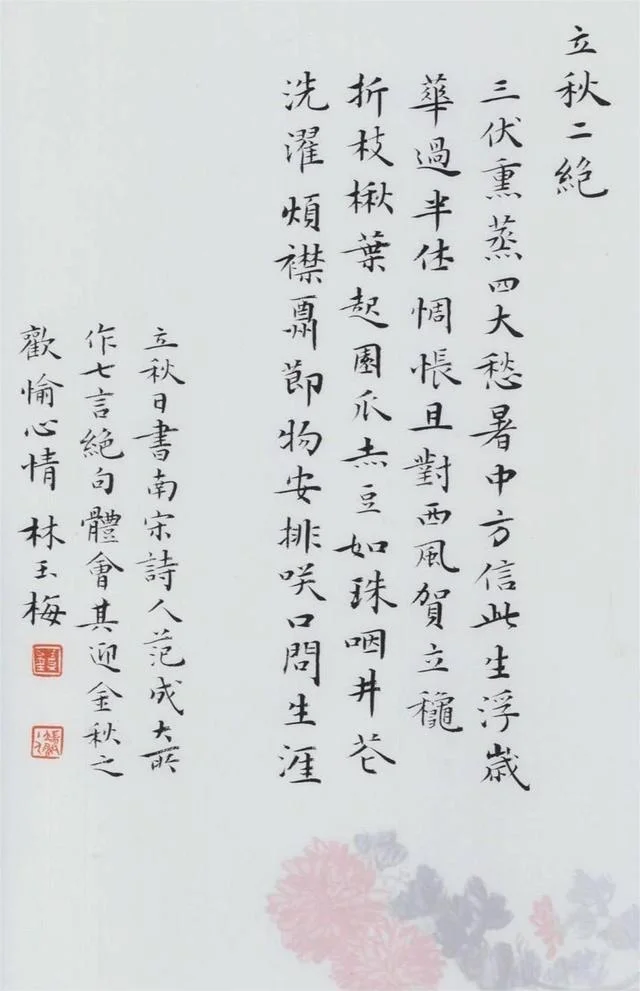 立秋二絕
三伏熏蒸四大愁暑中方信此生浮歲
華過半休惆悵且對西風賀立龝
折枝楸葉起園瓜赤豆如珠咽井花
洗濯煩襟酬節物安排咲口問生涯
立秋日書南宋詩人范成大所
作七言絕句體會其迎金秋之
歡愉心情 林玉梅